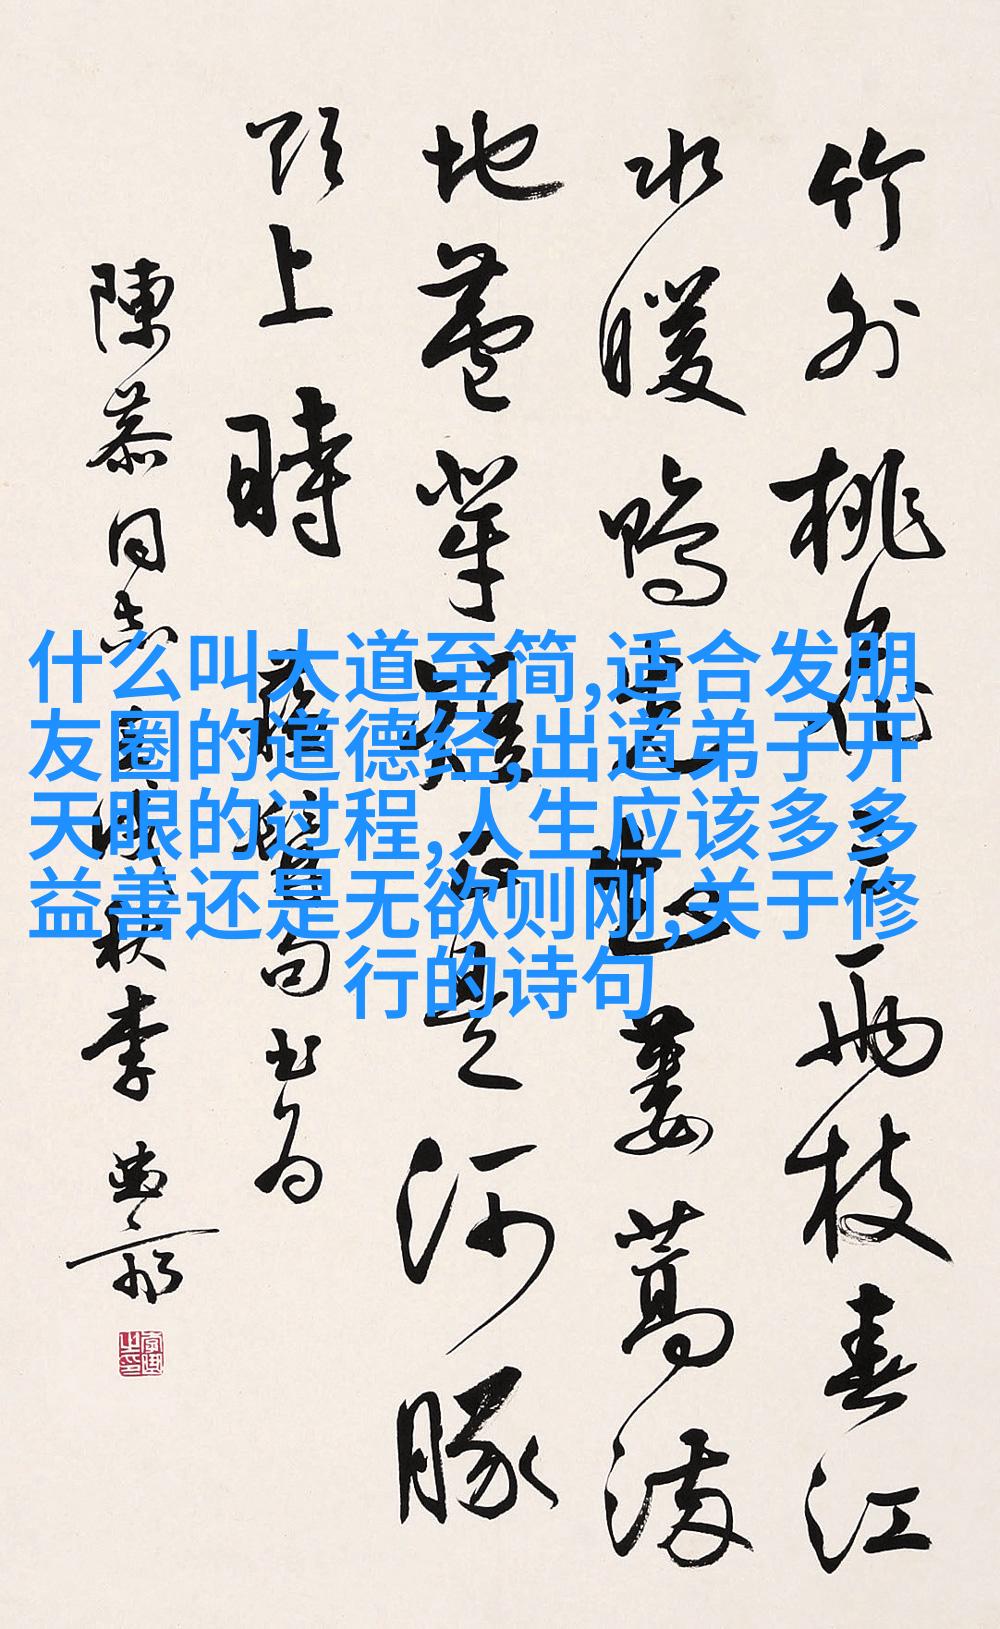 竹外桃花三兩枝春江
水暖鴨先知蔞蒿滿
地蘆芽短正是河豚
欲上時 蘇句书为
陳恭同志 秋李
什么叫大道至简,适合发朋
友圈的道德经,出道弟子开
天眼的过程,人生应该多多
益善还是无欲则刚,关于修
行的诗句